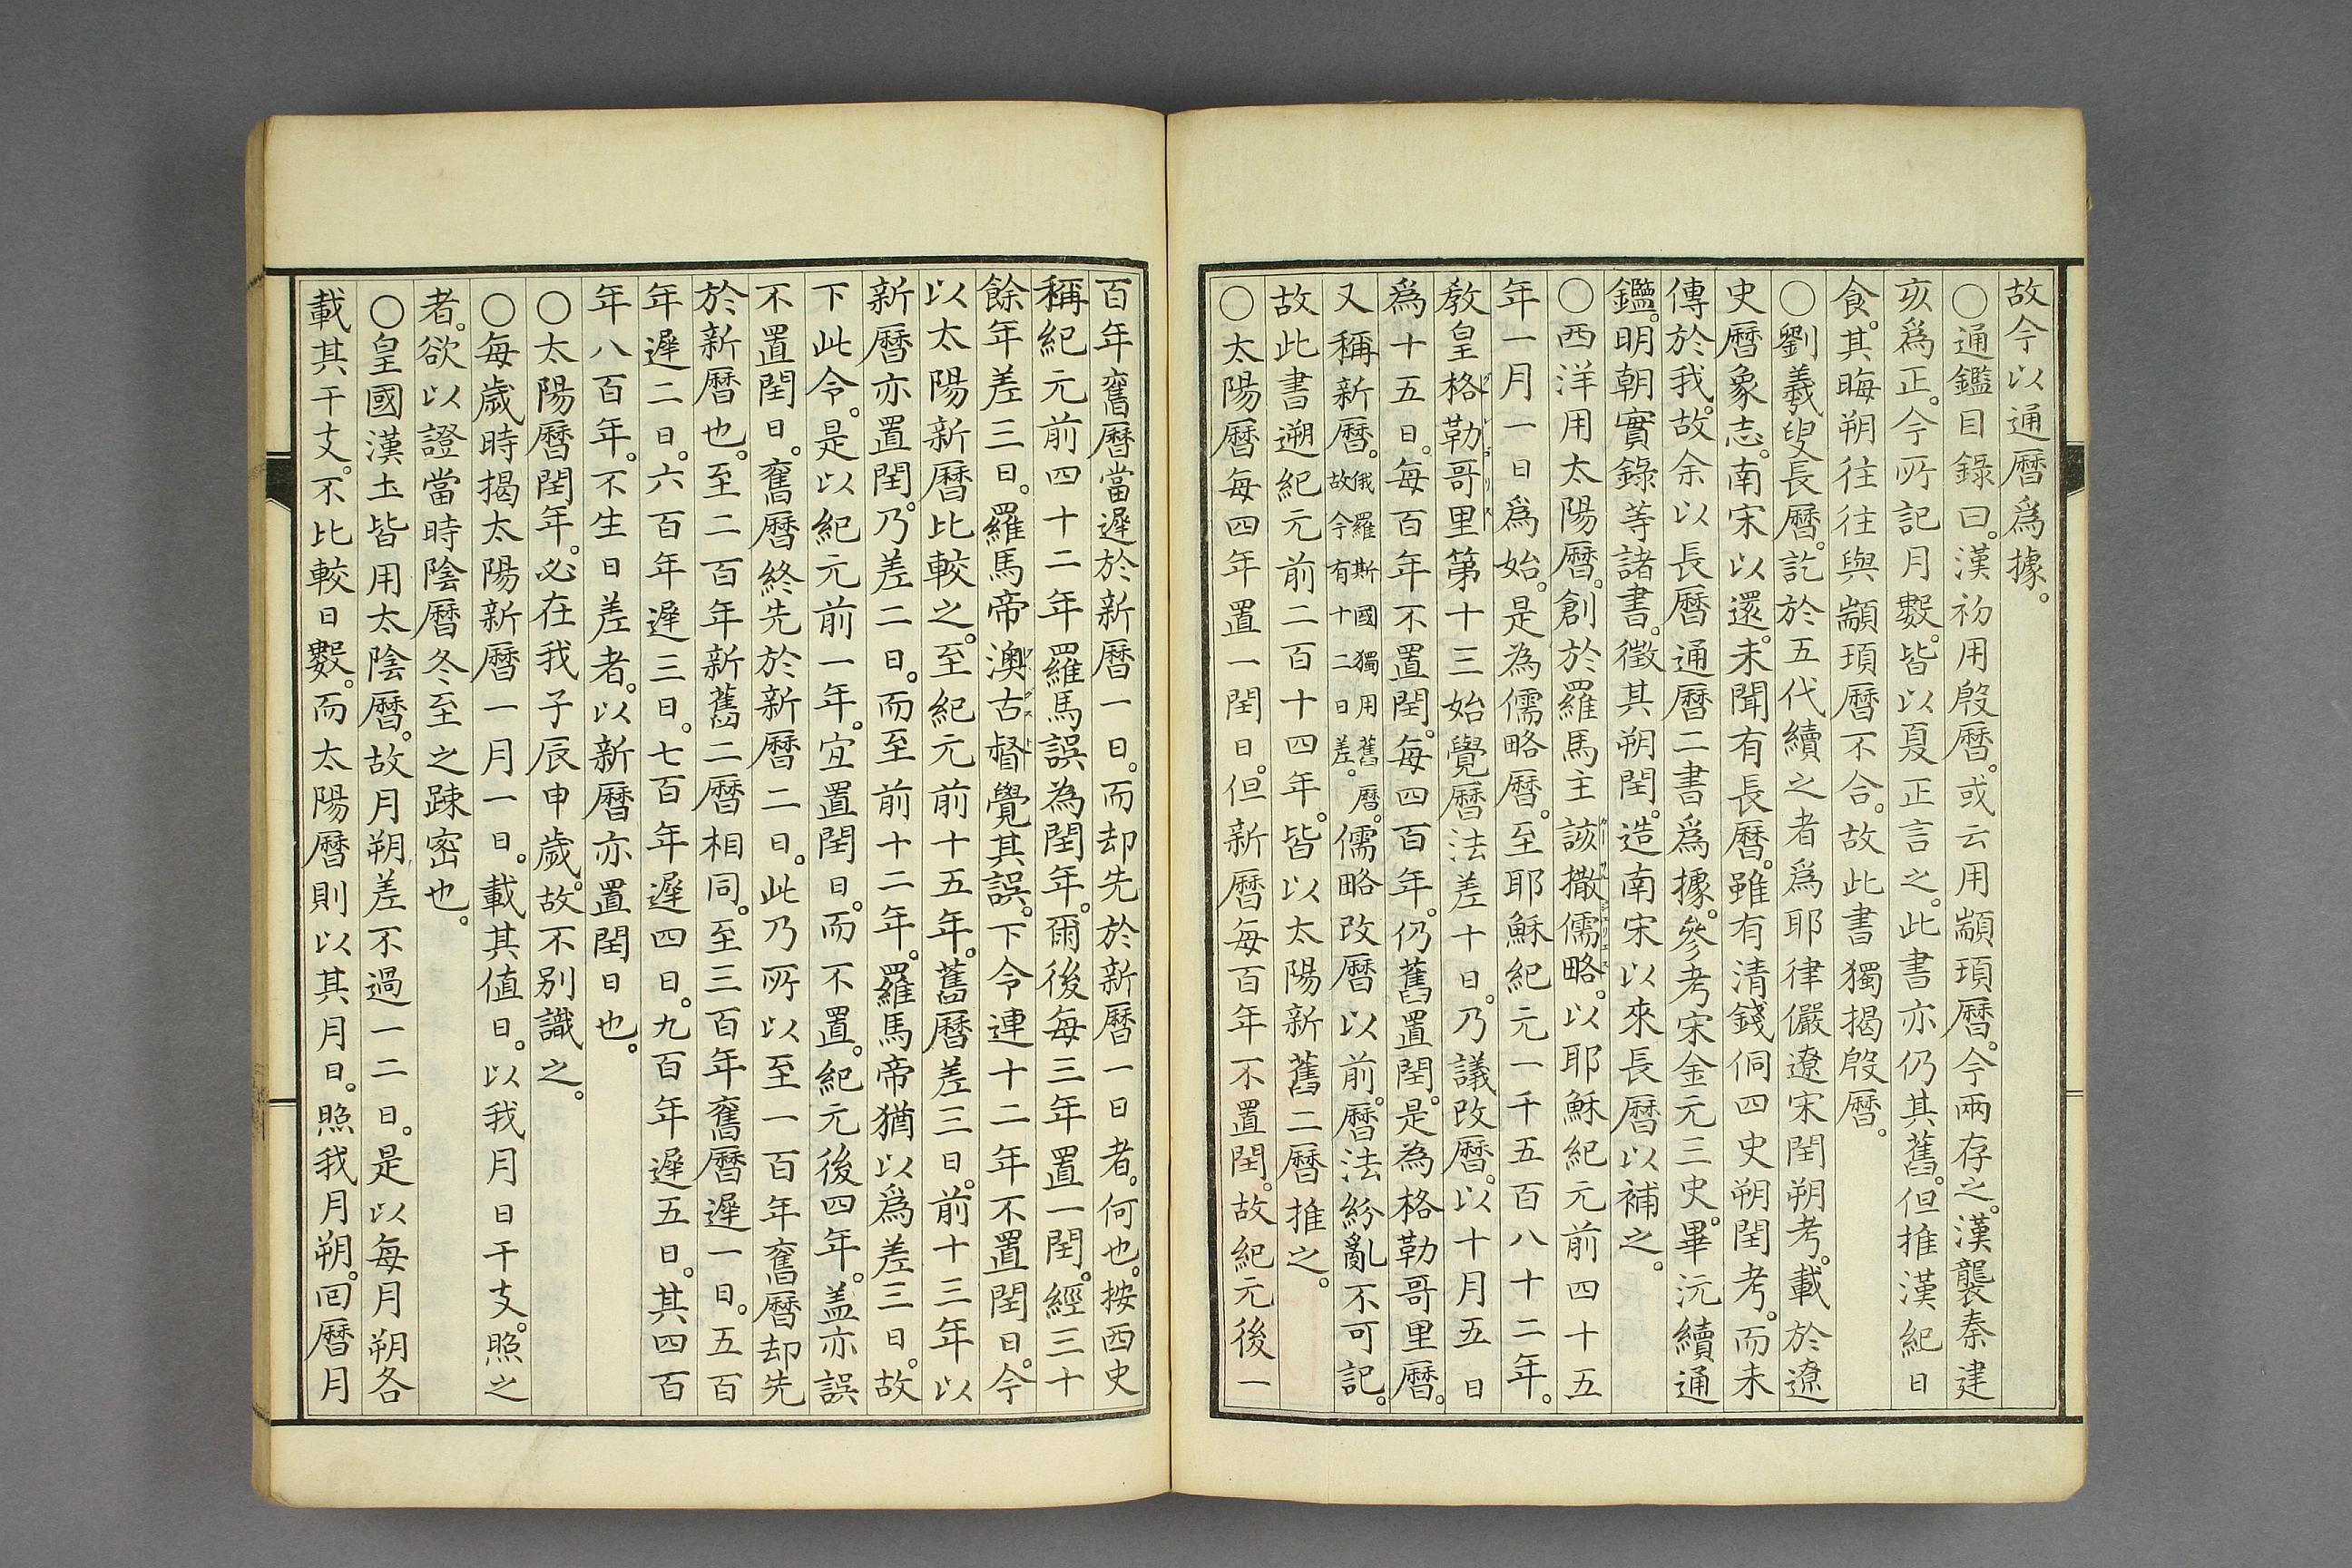 故今以通曆爲據。
○通鑑目錄曰。漢初用殷曆。或云用顓頊曆。今兩存之。漢襲秦建
亥爲正。今所記月數。皆以夏正言之。此書亦仍其舊。但推漢紀日
食。其晦朔往往與顓頊曆不合。故此書獨揭殷曆。
○劉羲叟長曆。訖於五代續之者爲耶律儼遼宋閏朔考。載於遼
史曆象志。南宋以還。未聞有長曆。雖有清錢侗四史朔閏考。而未
傳於我。故余以長曆通曆二書爲據。參考宋金元三史。畢沅續通
鑑。明朝實錄等諸書。徵其朔閏。造南宋以來長曆以補之。
○西洋用太陽曆。創於羅馬主該撒儒略。以耶穌紀元前四十五
年一月一日爲始。是為儒略曆。至耶穌紀元一千五百八十二年。
教皇格勒哥里第十三始覺曆法差十日。乃議改曆。以十月五日
爲十五日。每百年不置閏。每四百年。仍舊置閏。是為格勒哥里曆。
又稱新曆。俄羅斯國獨用舊曆。故今有十二日差。儒略改曆以前。曆法紛亂不可記。
故此書遡紀元前二百十四年。皆以太陽新舊二曆推之。
○太陽曆每四年置一閏日。但新曆每百年不置閏。故紀元後一
百年舊曆當遲於新曆一日。而却先於新曆一日者。何也。按西史
稱紀元前四十二年羅馬誤為閏年。爾後每三年置一閏。經三十
餘年差三日。羅馬帝澳古督覺其誤。下令連十二年不置閏日。今
以太陽新曆比較之。至紀元前十五年。舊曆差三日。前十三年以
新曆亦置閏。乃差二日。而至前十二年。羅馬帝猶以爲差三日。故
下此令。是以紀元前一年。宜置閏日。而不置。紀元後四年。盖亦誤
不置閏日。舊曆終先於新曆二日。此乃所以至一百年舊曆却先
於新曆也。至二百年新舊二曆相同。至三百年舊曆遲一日。五百
年遲二日。六百年遲三日。七百年遲四日。九百年遲五日。其四百
年八百年。不生日差者。以新曆亦置閏日也。
○太陽曆閏年。必在我子辰申歲。故不別識之。
○每歲時揭太陽新曆一月一日。載其値日。以我月日干支。照之
者。欲以證當時陰曆冬至之疎密也。
○皇國漢土皆用太陰曆。故月朔差不過一二日。是以每月朔各
載其干支。不比較日數。而太陽曆則以其月日。照我月朔。回曆月